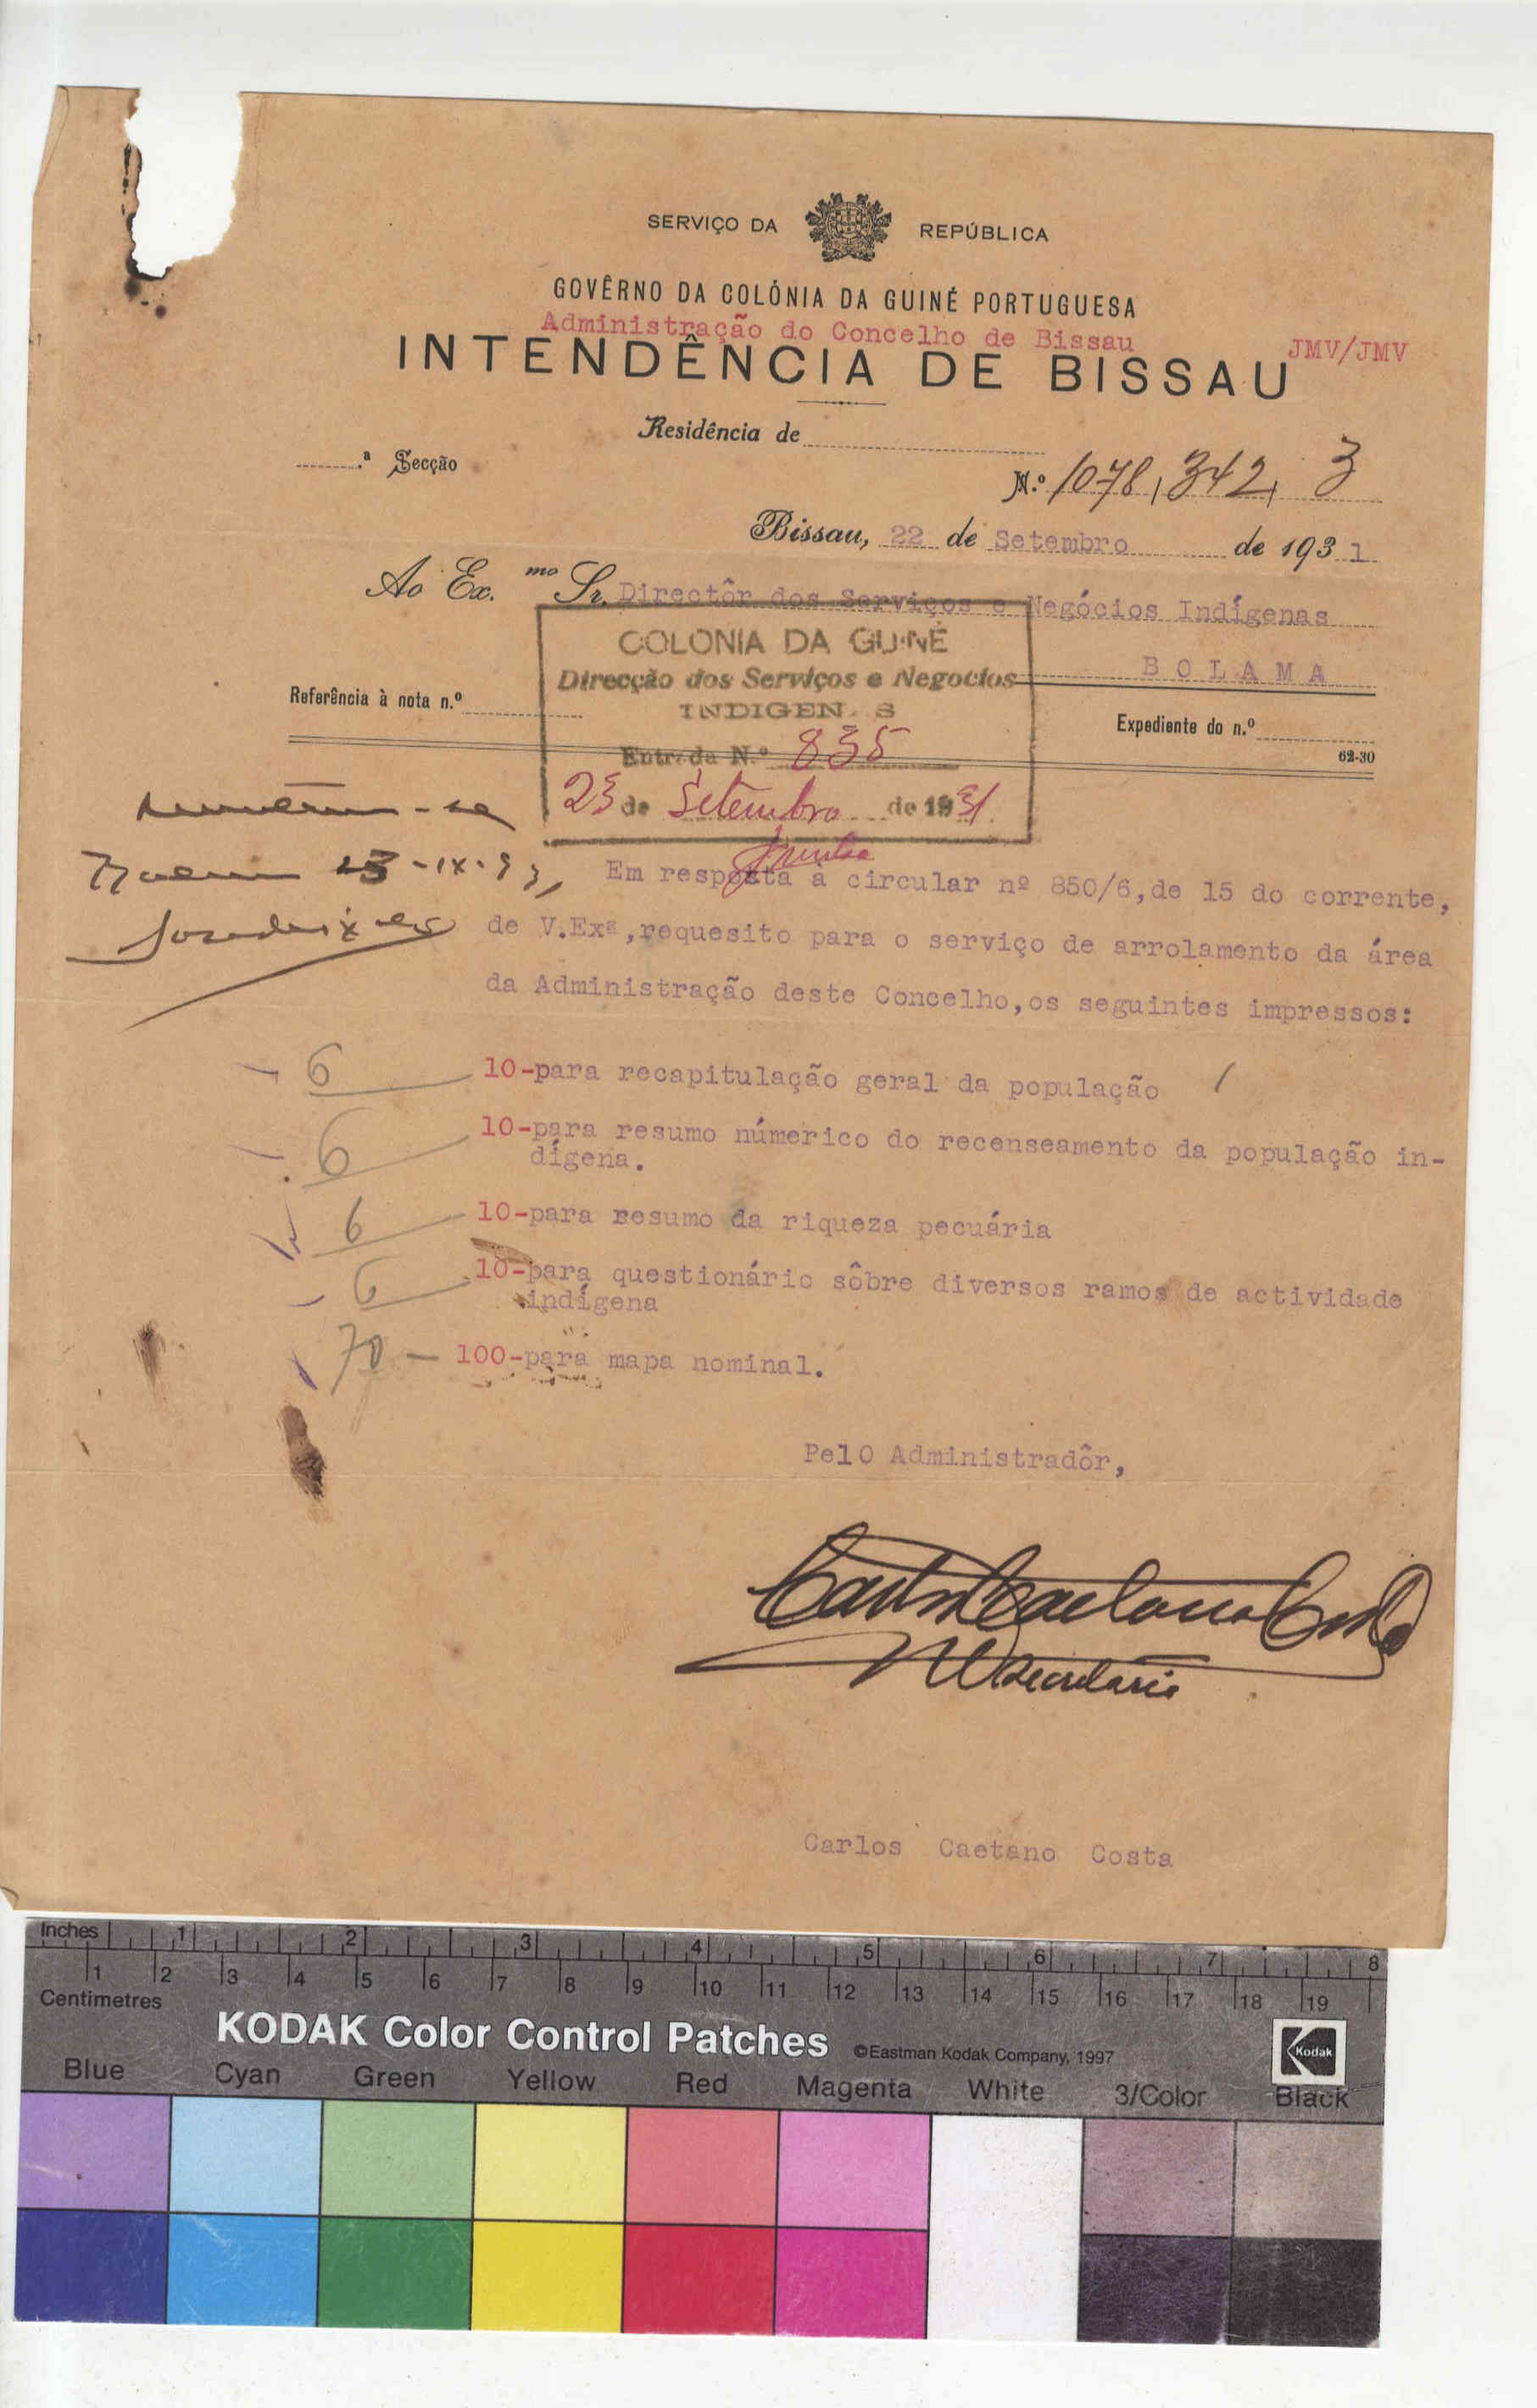 SERVIÇO DA REPÚBLICA
GOVÊRNO DA COLÓNIA DA GUINÉ PORTUGUESA
Administração do Concelho de Bissau
JMV/JMV
INTENDÊNCIA DE BISSAU
Residência de
.ª Secção
N.º 1078, 342, 3
Bissau, 22 de Setembro de 1931
Ao Ex.mo Sr. Directôr dos Serviços e Negócios Indígenas
COLONIA DA GUINÉ
BOLAMA
Direcção dos Serviços e Negocios
Referência à nota n.º
INDIGEN S
Expediente do n.º
Entrada N.º 835
62-30
23 de Setembro de 1931
23-IX-31
Em resposta à circular nº 850/6,de 15 do corrente,
de V.Exª,requesito para o serviço de arrolamento da área
da Administração deste Concelho,os seguintes impressos:
6 10-para recapitulação geral da população
6 10-para resumo númerico do recenseamento da população in-
dígena.
6 10-para resumo da riqueza pecuária
6 10-para questionário sôbre diversos ramos de actividade
indígena
70 — 100-para mapa nominal.
Pelo Administradôr,
Carlos Caetano Costa
Secretario
Carlos Caetano Costa
Inches 1 2 3 4 5 6 7 8
1 2 3 4 5 6 7 8 9 10 11 12 13 14 15 16 17 18 19
Centimetres
KODAK Color Control Patches ©Eastman Kodak Company, 1997 Kodak
Blue Cyan Green Yellow Red Magenta White 3/Color Black